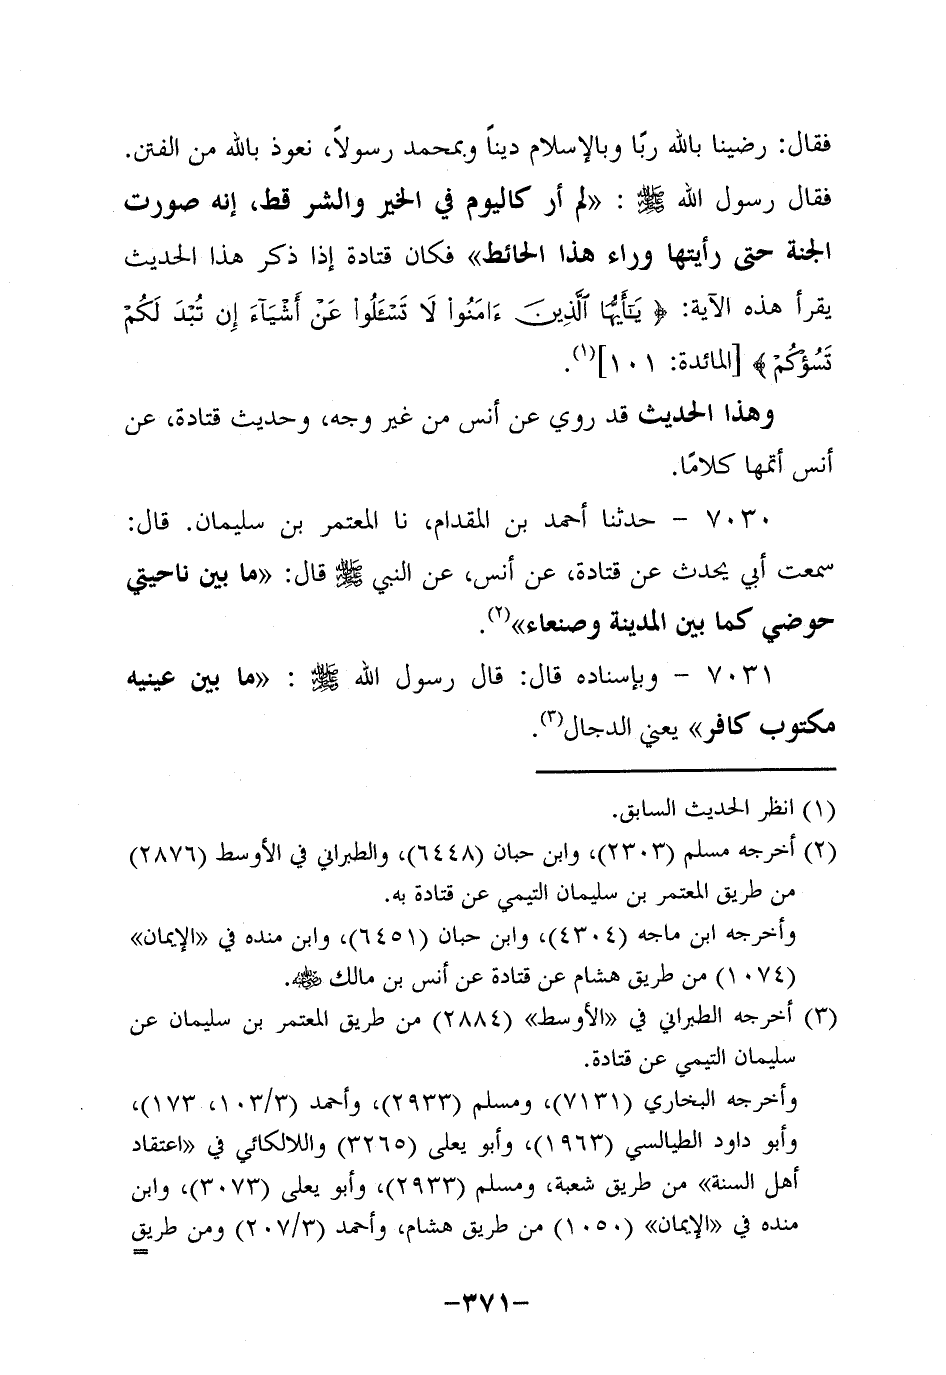 فقال: رضينا بالله ربًا وبالإسلام ديناً وبمحمد رسولاً، نعوذ بالله من الفتن.
فقال رسول الله ﷺ : «لم أر كاليوم في الخير والشر قط، إنه صورت
الجنة حتى رأيتها وراء هذا الحائط» فكان قتادة إذا ذكر هذا الحديث
يقرأ هذه الآية: ﴿ يَٰٓأَيُّهَا ٱلَّذِينَ ءَامَنُوا۟ لَا تَسْـَٔلُوا۟ عَنْ أَشْيَآءَ إِن تُبْدَ لَكُمْ
تَسُؤْكُمْ ﴾ [المائدة: ١٠١](١).
وهذا الحديث قد روي عن أنس من غير وجه، وحديث قتادة، عن
أنس أتمها كلامًا.
٧٠٣٠ - حدثنا أحمد بن المقدام، نا المعتمر بن سليمان. قال:
سمعت أبي يحدث عن قتادة، عن أنس، عن النبي ﷺ قال: «ما بين ناحيتي
حوضي كما بين المدينة وصنعاء»(٢).
٧٠٣١ - وبإسناده قال: قال رسول الله ﷺ : «ما بين عينيه
مكتوب كافر» يعني الدجال(٣).
(١) انظر الحديث السابق.
(٢) أخرجه مسلم (٢٣٠٣)، وابن حبان (٦٤٤٨)، والطبراني في الأوسط (٢٨٧٦)
من طريق المعتمر بن سليمان التيمي عن قتادة به.
وأخرجه ابن ماجه (٤٣٠٤)، وابن حبان (٦٤٥١)، وابن منده في «الإيمان»
(١٠٧٤) من طريق هشام عن قتادة عن أنس بن مالك رضي الله عنه.
(٣) أخرجه الطبراني في «الأوسط» (٢٨٨٤) من طريق المعتمر بن سليمان عن
سليمان التيمي عن قتادة.
وأخرجه البخاري (٧١٣١)، ومسلم (٢٩٣٣)، وأحمد (٣/ ١٠٣، ١٧٣)،
وأبو داود الطيالسي (١٩٦٣)، وأبو يعلى (٣٢٦٥) واللالكائي في «اعتقاد
أهل السنة» من طريق شعبة، ومسلم (٢٩٣٣)، وأبو يعلى (٣٠٧٣)، وابن
منده في «الإيمان» (١٠٥٠) من طريق هشام، وأحمد (٣/ ٢٠٧) ومن طريق
=
-٣٧١-